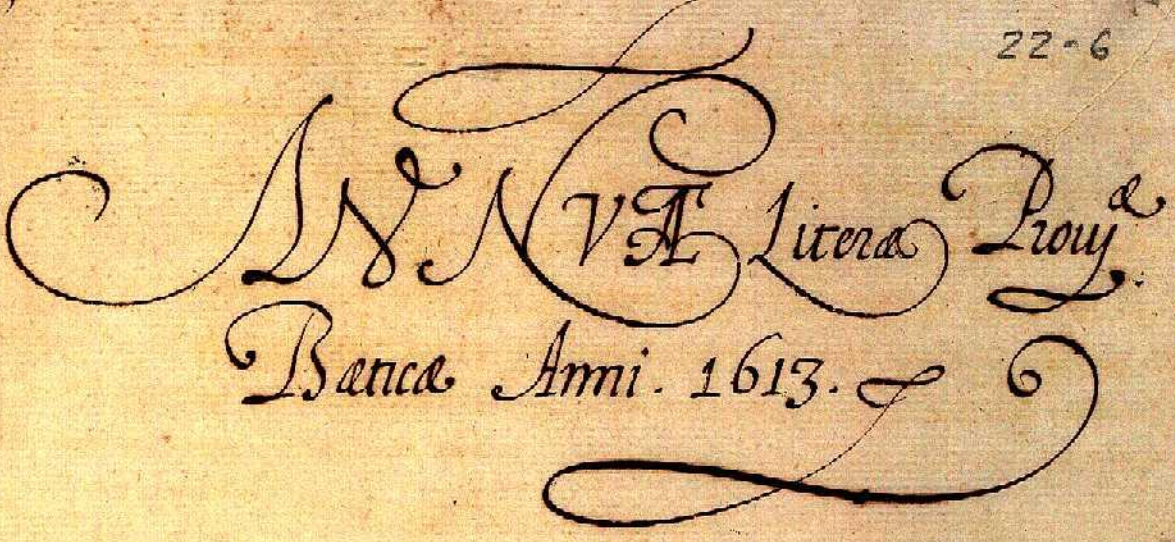 22-6
ANNVÆ Literæ Prouyæ
Bæticæ Anni. 1613.